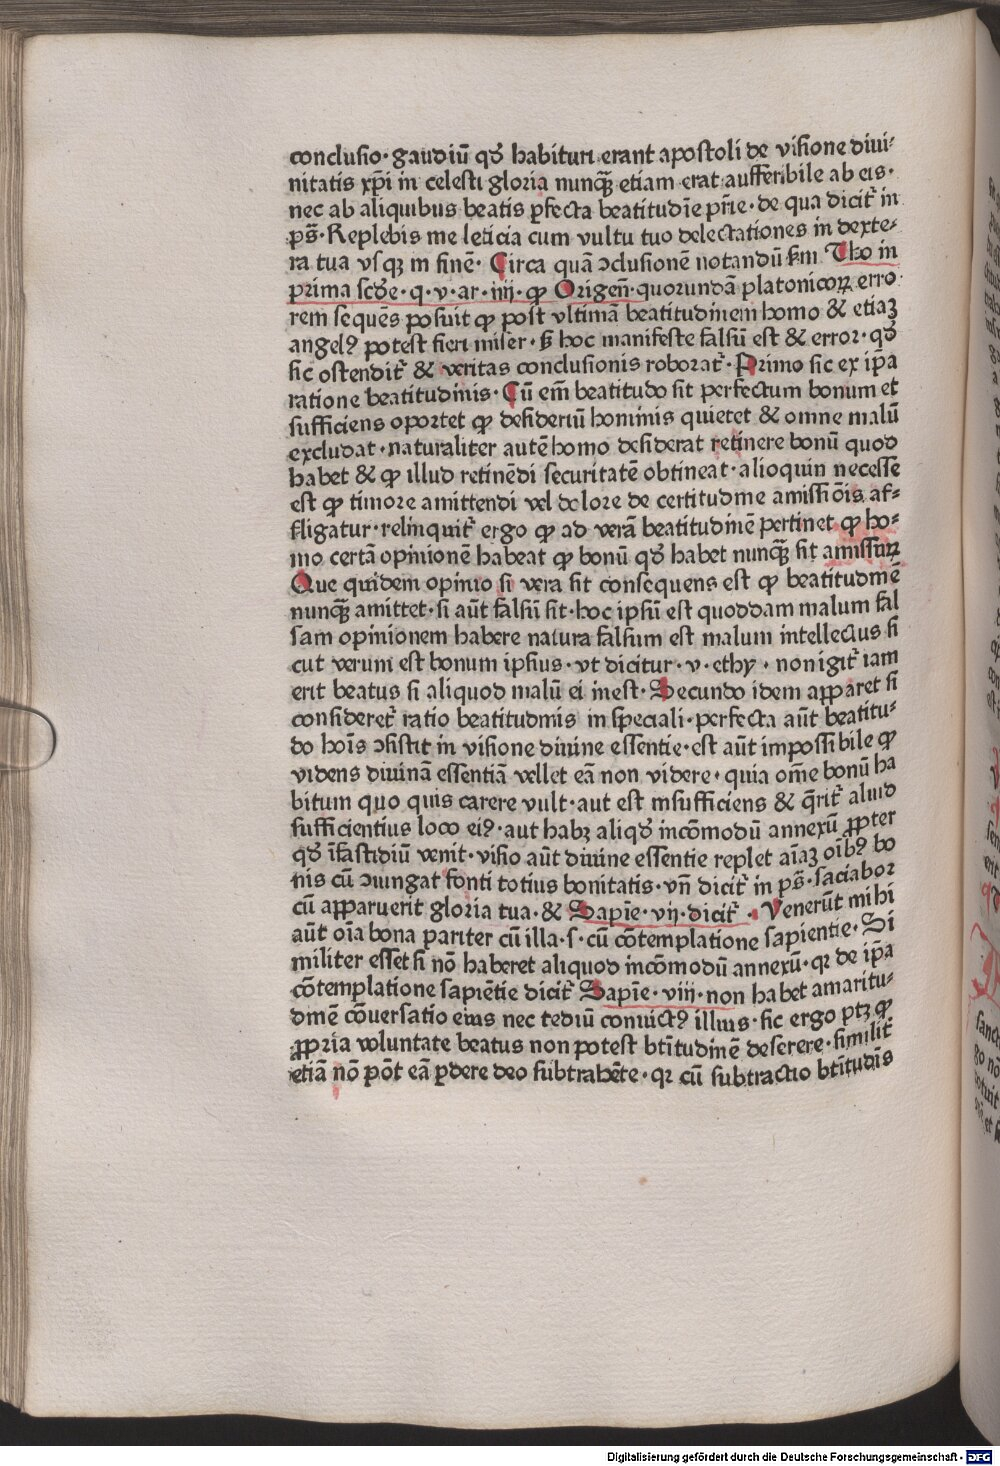 conclusio· gaudiū qđ habituri erant apostoli de visione diui-
nitatis xp̄i in celesti gloria nunq̄ꝫ etiam erat aufferibile ab eis·
nec ab aliquibus beatis ꝑfecta beatitudīe pr̄ie· de qua dicit᷑ in
ps̄· Replebis me leticia cum vultu tuo delectationes in dexte-
ra tua vsqꝫ in finē· Circa quā ↄclusionē notandū ẜm Tho in
prima scđe· q· v· ar· iiij· ꝙ Origeñ· quorundā platonicoꝝ erro
rem sequēs posuit ꝙ post vltimā beatitudinem homo & etiaꝫ
angelꝰ potest fieri miser· ẜ hoc manifeste falsū est & error· qđ
sic ostendit᷑ & veritas conclusionis roborat᷑· Primo sic ex ip̄a
ratione beatitudinis· Cū em̄ beatitudo sit perfectum bonum et
sufficiens oportet ꝙ desideriū hominis quietet & omne malū
excludat· naturaliter autē homo desiderat retinere bonū quod
habet & ꝙ illud retinēdi securitatē obtineat· alioquin necesse
est ꝙ timore amittendi vel dolore de certitudine amissiōis af-
fligatur· relinquit᷑ ergo ꝙ ad verā beatitudinē pertinet ꝙ ho-
mo certā opinionē habeat ꝙ bonū qđ habet nunq̄ꝫ sit amissuꝝ
Que quidem opinio si vera sit consequens est ꝙ beatitudinē
nunq̄ꝫ amittet· si aūt falsū sit· hoc ipsū est quoddam malum fal
sam opinionem habere natura falsum est malum intellectus si
cut verum est bonum ipsius· vt dicitur· v· ethy· non igit᷑ iam
erit beatus si aliquod malū ei inest· Secundo idem apparet si
consideret᷑ ratio beatitudinis in speciali· perfecta aūt beatitu-
do hoīs ↄsistit in visione diuine essentie· est aūt impossibile ꝙ
videns diuinā essentiā vellet eā non videre· quia om̄e bonū ha
bitum quo quis carere vult· aut est insufficiens & q̄rit᷑ aliud
sufficientius loco eiꝰ· aut habꝫ aliqđ incōmodū annexū ꝓpter
qđ ī fastidiū venit· visio aūt diuine essentie replet aīaꝫ oībꝰ bo
nis cū ↄiungat fonti totius bonitatis· vn̄ dicit᷑ in ps̄· saciabor
cū apparuerit gloria tua· & Sapiē· vij· dicit᷑· Venerūt mihi
aūt oīa bona pariter cū illa· s· cū cōtemplatione sapientie· Si
militer esset si nō haberet aliquod incōmodū annexū· qꝛ de ip̄a
cōtemplatione sapiētie dicit᷑ Sapiē· viij· non habet amaritu-
dinē cōuersatio eius nec tediū conuictꝰ illius· sic ergo ptꝫ ꝙ
ꝓpria voluntate beatus non potest bt̄itudinē deserere· similit᷑
etiā nō pōt eā ꝑdere deo subtrahēte· qꝛ cū subtractio bt̄itudīs
Digitalisierung gefördert durch die Deutsche Forschungsgemeinschaft - DFG